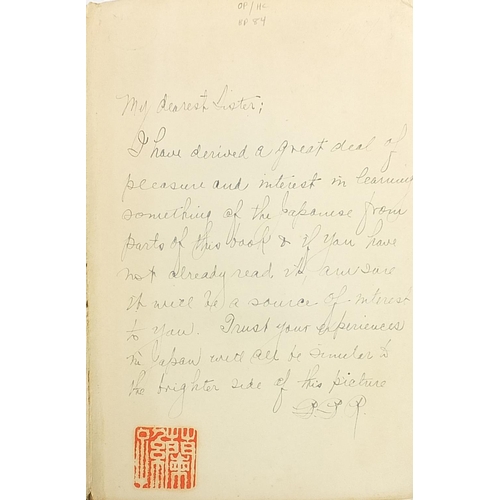 OP/HC
My dearest Sister;
I have derived a great deal of
pleasure and interest in learning
something of the Japanese from
parts of this book & if you have
not already read it, am sure
it will be a source of interest
to you. Trust your experiences
in Japan will all be similar to
the brighter side of this picture